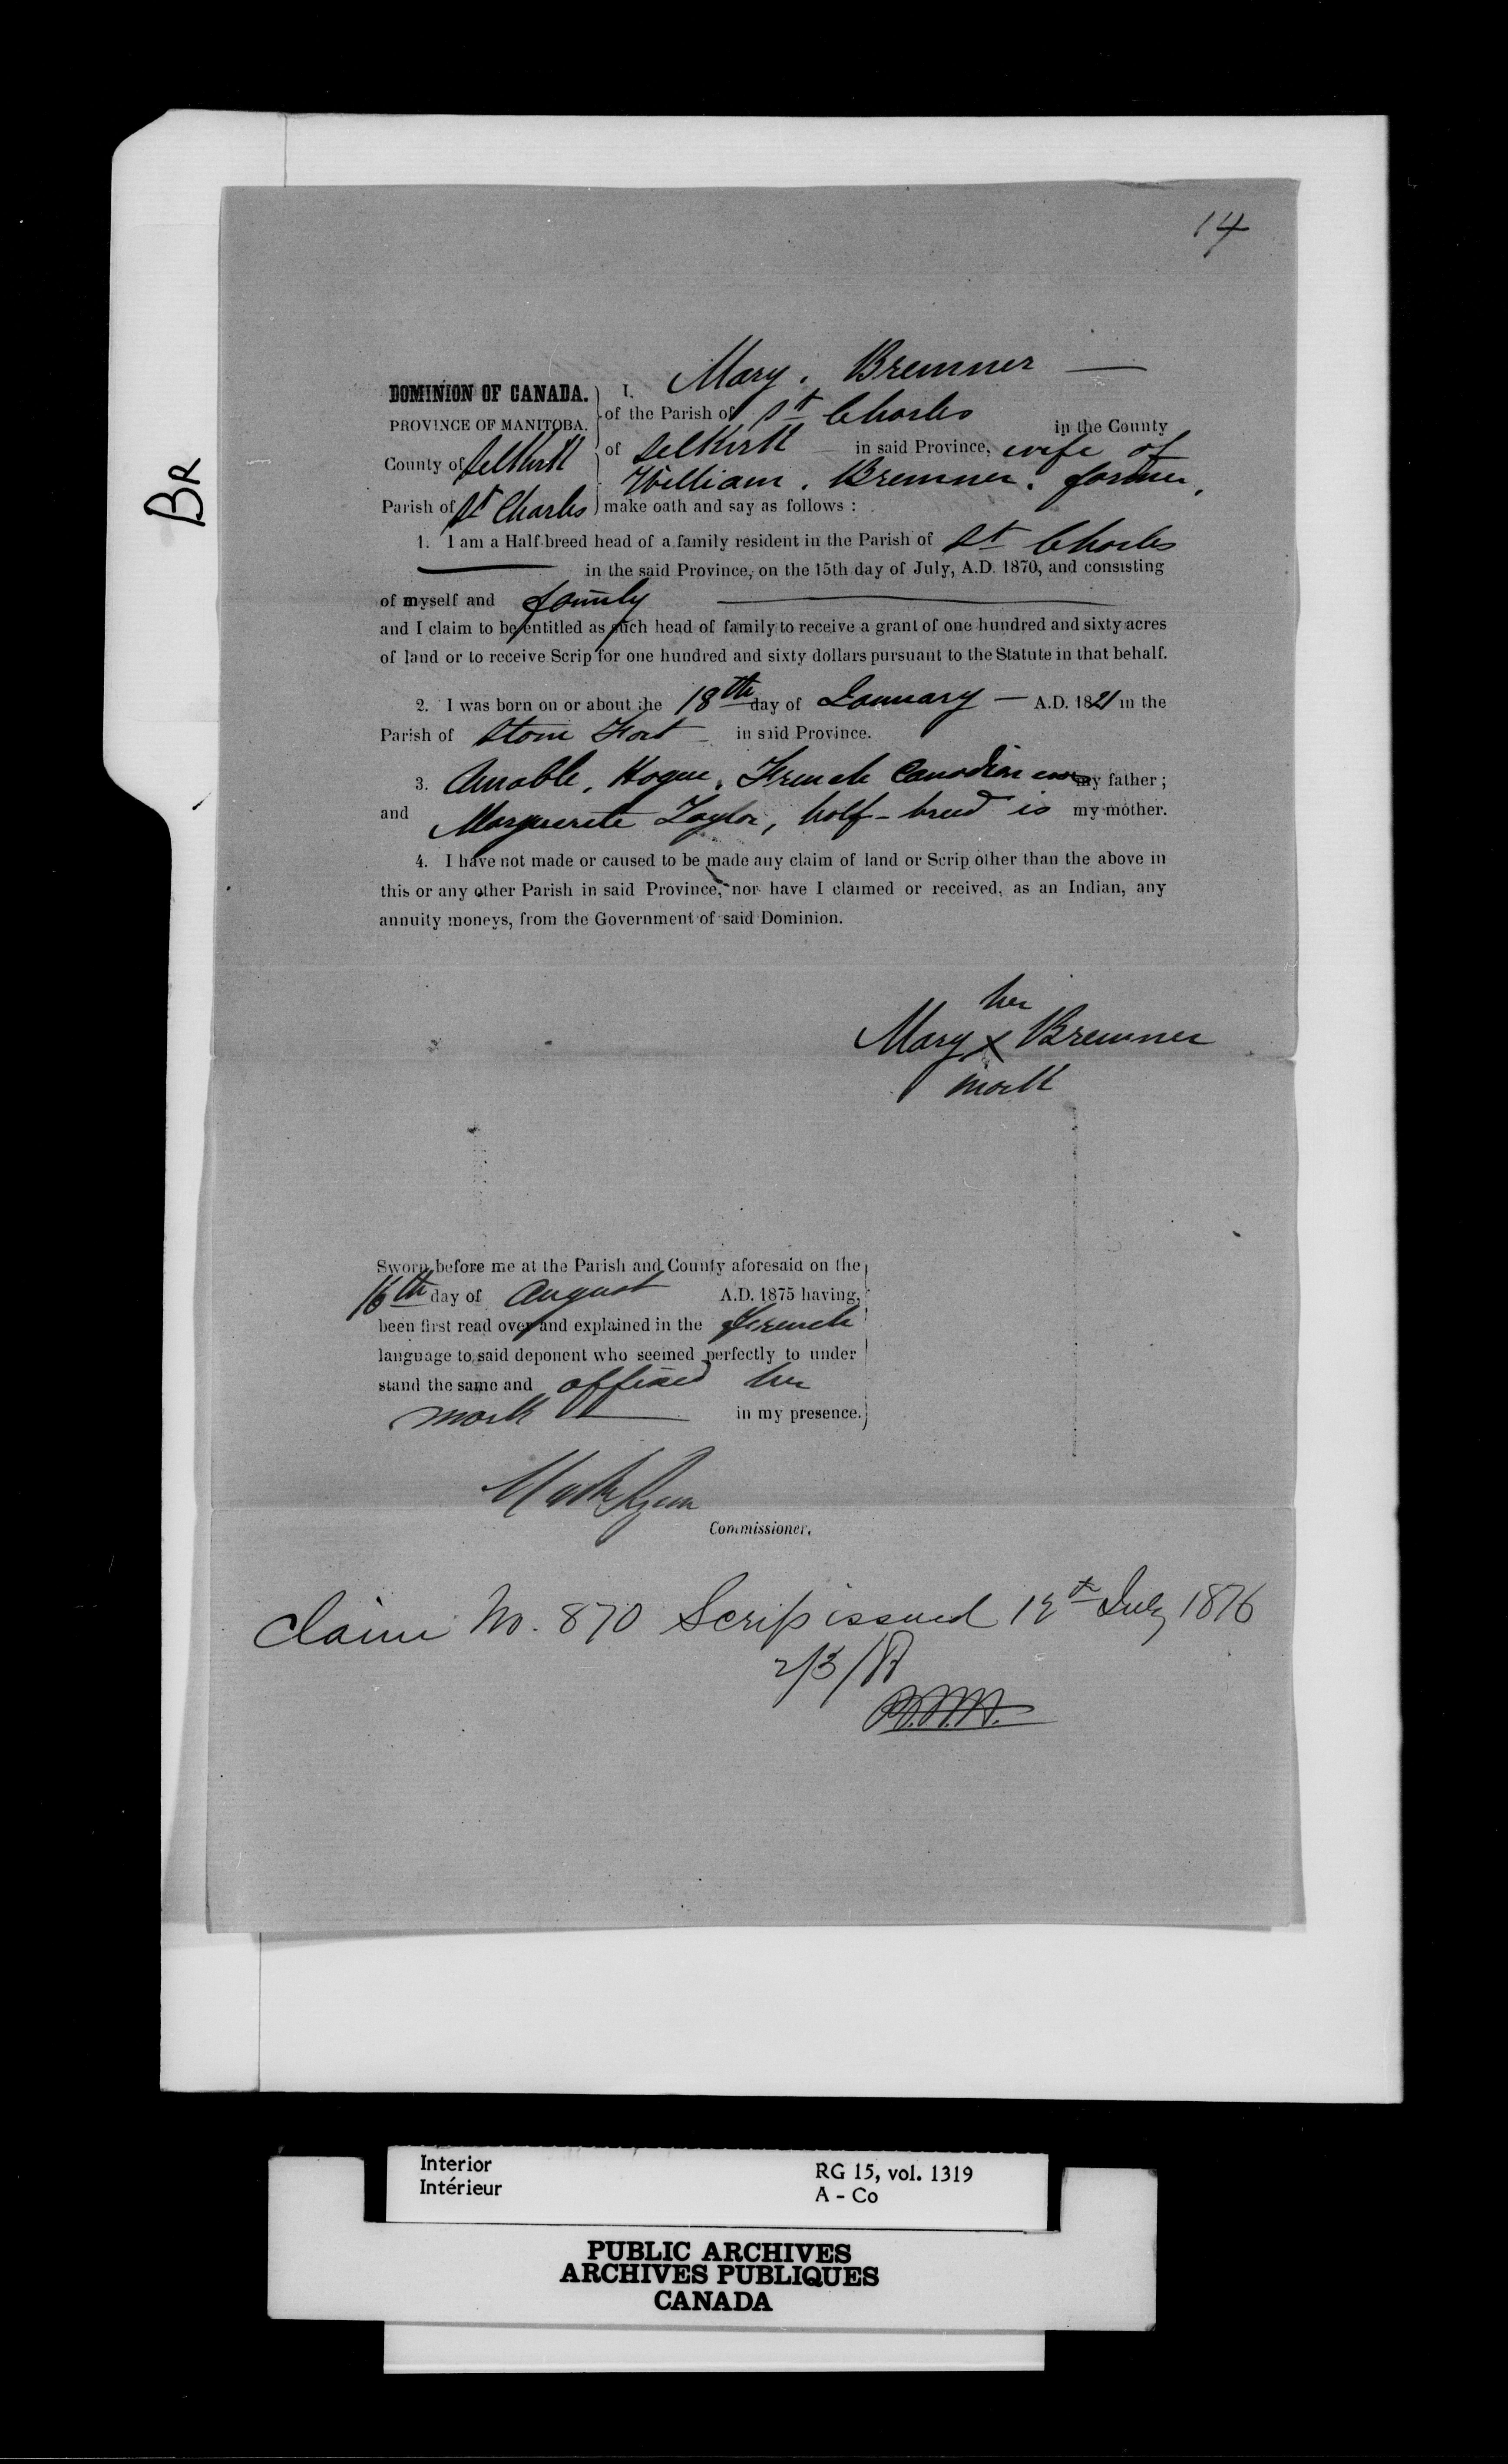 14
BR
DOMINION OF CANADA.
PROVINCE OF MANITOBA.
County of Selkirk
Parish of St Charles
I, Mary. Bremner —
of the Parish of St Charles in the County
of Selkirk — in said Province, wife of
William. Bremner. farmer,
make oath and say as follows :
1. I am a Half-breed head of a family resident in the Parish of St Charles
in the said Province, on the 15th day of July, A.D. 1870, and consisting
of myself and family
and I claim to be entitled as such head of family to receive a grant of one hundred and sixty acres
of land or to receive Scrip for one hundred and sixty dollars pursuant to the Statute in that behalf.
2. I was born on or about the 18th day of January — A.D. 1821 in the
Parish of Stone Fort — in said Province.
3. Amable, Hogue, French Canadian my father ;
and Marguerite Taylor, half-breed is my mother.
4. I have not made or caused to be made any claim of land or Scrip other than the above in
this or any other Parish in said Province, nor have I claimed or received, as an Indian, any
annuity moneys, from the Government of said Dominion.
her
Mary X Bremner
mark
Sworn before me at the Parish and County aforesaid on the
16th day of August A.D. 1875 having,
been first read over and explained in the French
language to said deponent who seemed perfectly to under
stand the same and affixed her
mark in my presence.
Commissioner.
Claim No. 870 Scrip issued 12th July 1876
Interior
Intérieur
RG 15, vol. 1319
A - Co
PUBLIC ARCHIVES
ARCHIVES PUBLIQUES
CANADA